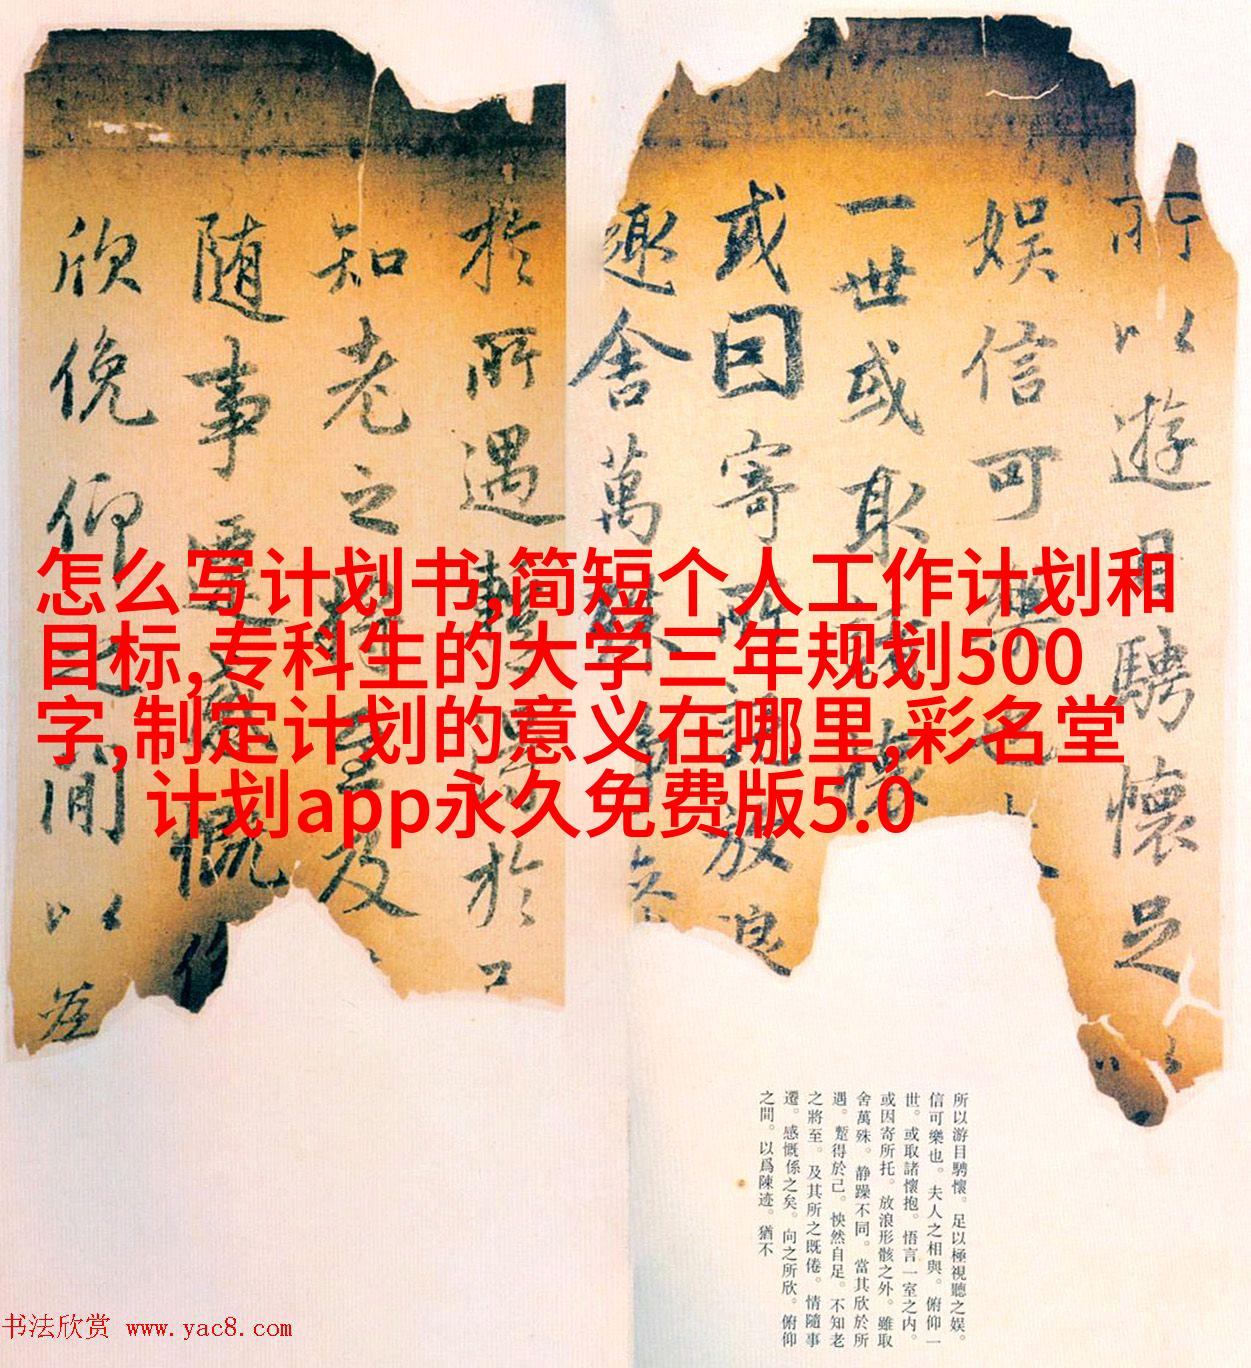 所以遊目騁懷足
娱信可
一世或取諸懷
或因寄所託放浪
趣舍萬殊
於所遇輒得於己
知老之将至及
随事遷感慨係
欣俛仰之間以為
怎么写计划书,简短个人工作计划和
目标,专科生的大学三年规划500
字,制定计划的意义在哪里,彩名堂
计划app永久免费版5.0
所以游目騁懷。足以極視聽之娱。
信可樂也。夫人之相與。俯仰一
世。或取諸懷抱。悟言一室之内。
或因寄所托。放浪形骸之外。雖取
舍萬殊。静躁不同。當其欣於所
遇。蹔得於己。怏然自足。不知老
之將至。及其所之既倦。情隨事
遷。感慨係之矣。向之所欣。俯仰
之間。以爲陳迹。猶不
书法欣赏 www.yac8.com